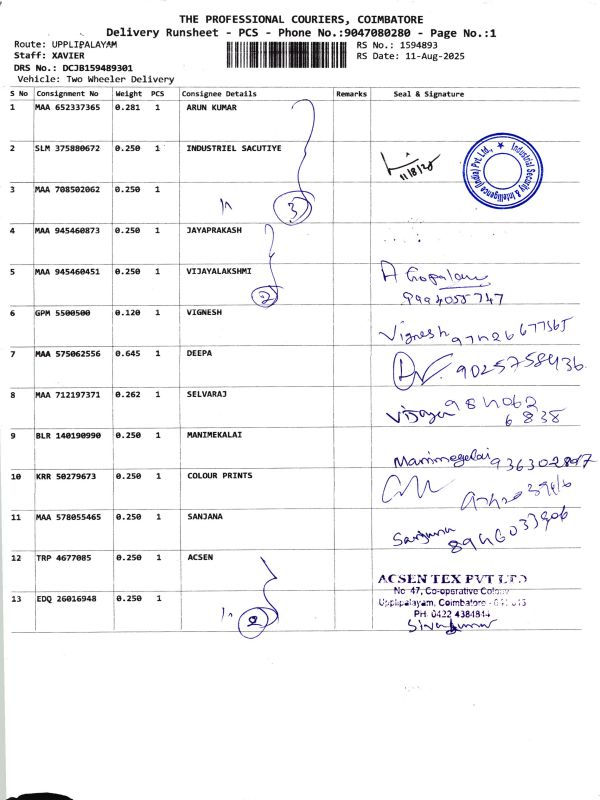 THE PROFESSIONAL COURIERS, COIMBATORE
Delivery Runsheet - PCS - Phone No.:9047080280 - Page No.:1
Route: UPPLIPALAYAM
RS No.: 1594893
Staff: XAVIER
RS Date: 11-Aug-2025
DRS No.: DCJB159489301
Vehicle: Two Wheeler Delivery
S No Consignment No Weight PCS Consignee Details Remarks Seal & Signature
1 MAA 652337365 0.281 1 ARUN KUMAR
2 SLM 375880672 0.250 1 INDUSTRIEL SACUTIYE
11/8/25
Industrial Security & Intelligence (India) Pvt. Ltd.,
3 MAA 708502062 0.250 1
3
4 MAA 945460873 0.250 1 JAYAPRAKASH
5 MAA 945460451 0.250 1 VIJAYALAKSHMI
2
A Gopalan
9994055747
6 GPM 5500500 0.120 1 VIGNESH
Vignesh
7 MAA 575062556 0.645 1 DEEPA
9025758436
8 MAA 712197371 0.262 1 SELVARAJ
Vijaya 984062
6838
9 BLR 140190990 0.250 1 MANIMEKALAI
Manimegalai
10 KRR 50279673 0.250 1 COLOUR PRINTS
11 MAA 578055465 0.250 1 SANJANA
Sanjana
12 TRP 4677085 0.250 1 ACSEN
ACSEN TEX PVT LTD
No 47, Co-operative Colony
Upplipalayam, Coimbatore - 641 015
PH: 0422 4384844
13 EDQ 26016948 0.250 1
2
Sivakumar